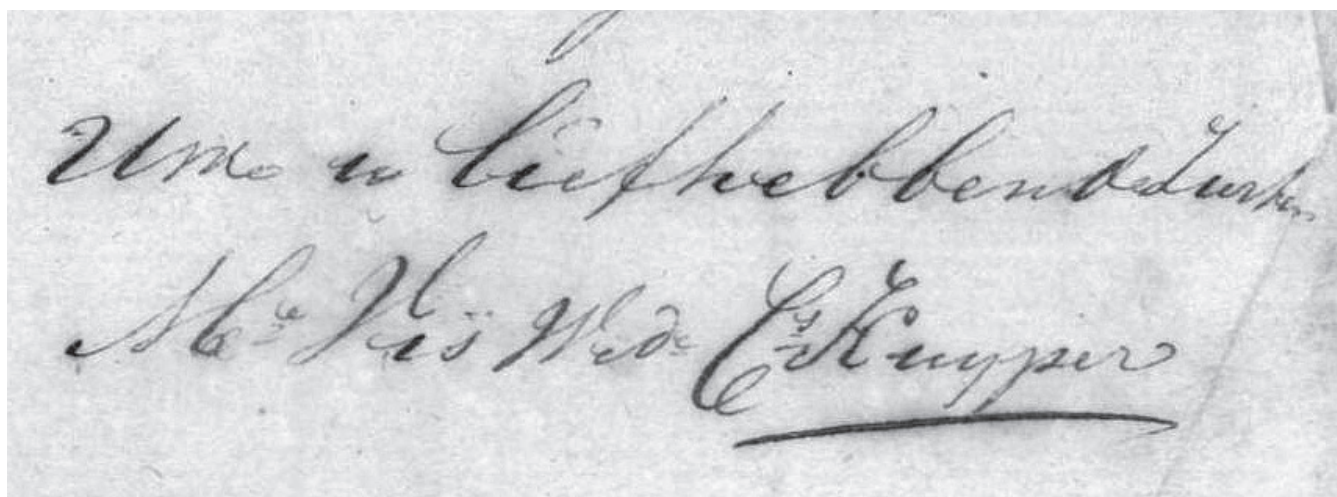 Uwe u liefhebbende Zuster
Mtje Vis Wede Cs Kuyper